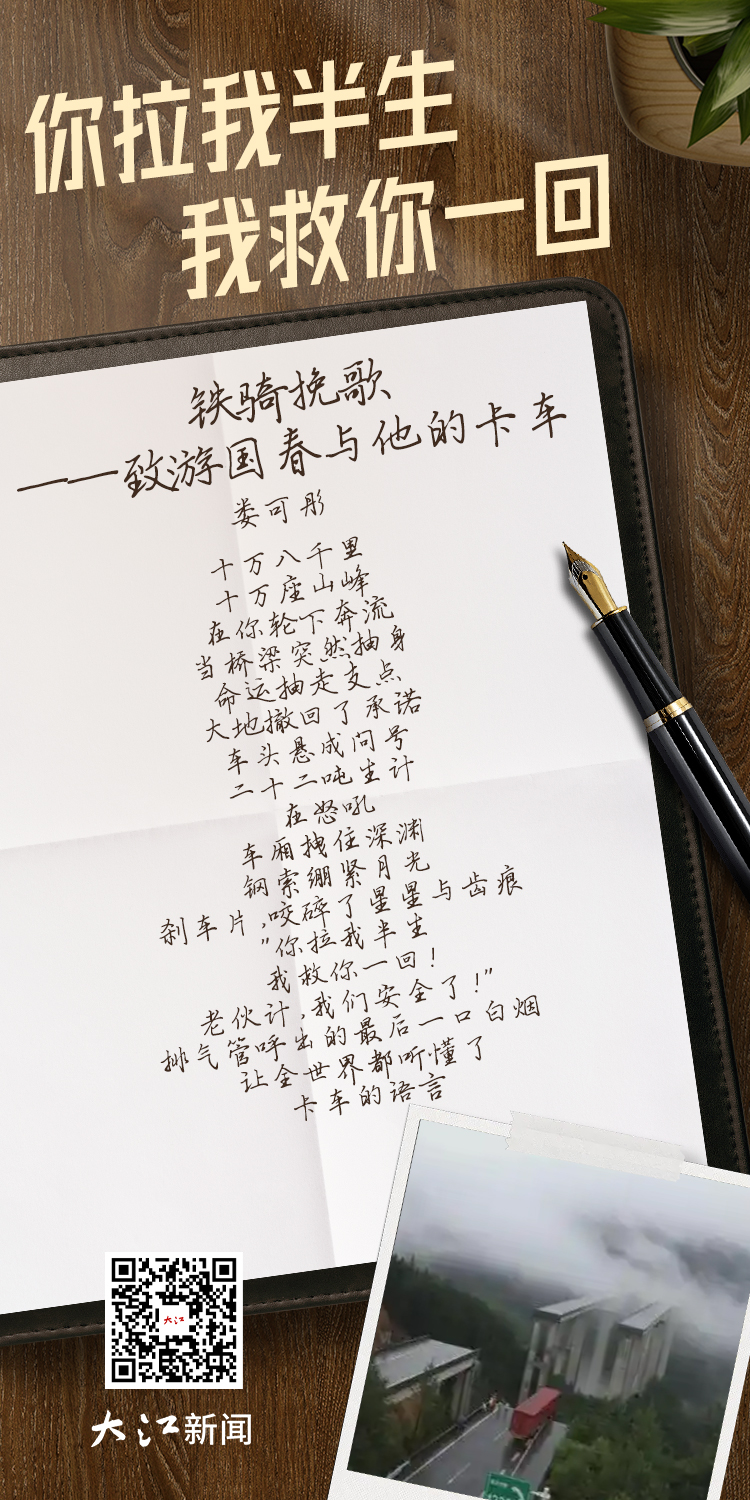 你拉我半生
我救你一回
铁骑挽歌
——致游国春与他的卡车
娄可彤
十万八千里
十万座山峰
在你轮下奔流
当桥梁突然抽身
命运抽走支点
大地撤回了承诺
车头悬成问号
二十二吨生计
在怒吼
车厢拽住深渊
钢索绷紧月光
刹车片,咬碎了星星与齿痕
"你拉我半生
我救你一回!
老伙计,我们安全了!"
排气管呼出的最后一口白烟
让全世界都听懂了
卡车的语言
大江
大江新闻